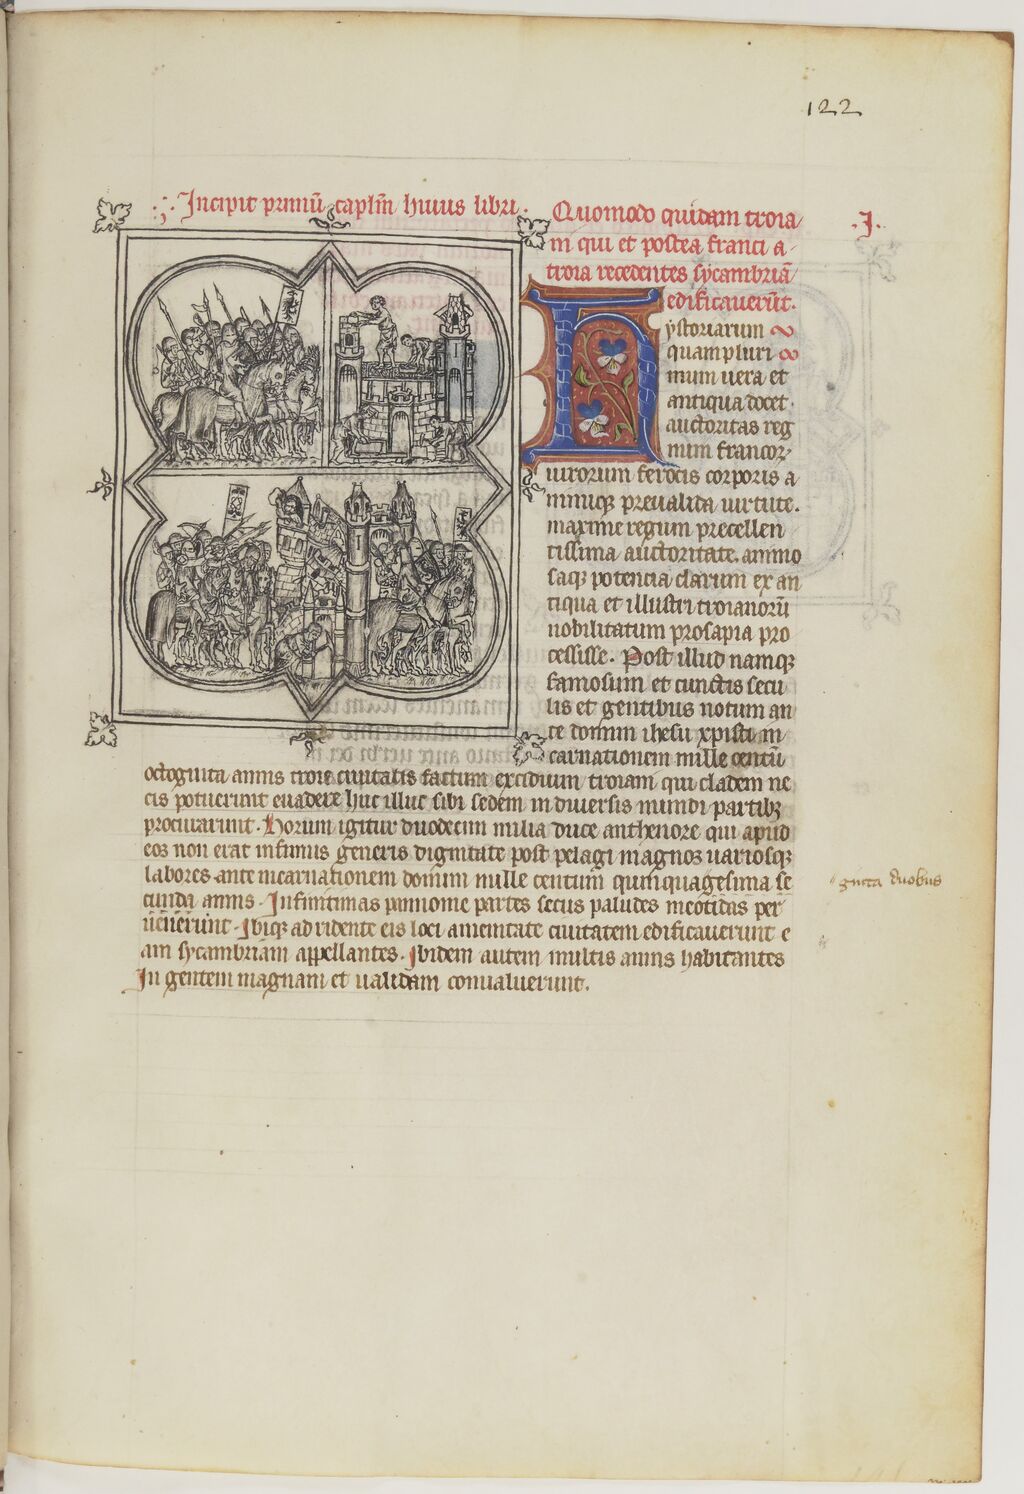 122
Incipit primū caplm̄ huius libri. Quomodo quidam troia
.J.
ni qui et postea franci a
troia recedentes sycambriā
edificauerūt.
Hystoriarum
quampluri
mum uera et
antiqua docet
auctoritas reg
num francoꝝ
uirorum ferocis corporis a
nimiqꝫ preualida uirtute.
maxime regum precellen
tissima auctoritate. animo
saqꝫ potencia clarum ex an
tiqua et illustri troianorū
nobilitatum prosapia pro
cessisse. Post illud namqꝫ
famosum et cunctis secu
lis et gentibus notum an
te domini ihesu xpisti in
carnationem mille centū
octoginta annis troie ciuitatis factum excidium troiam qui cladem ne
cis potuerunt euadere huc illuc sibi sedem in diuersis mundi partibꝫ
procurarunt. Horum igitur duodecim milia duce anthenore qui apud
eos non erat infimus generis dignitate post pelagi magnos uariosqꝫ
labores ante incarnationem domini mille centum quinquagesima se
cunda annis. Jnfinitimas pannonie partes secus paludes meotidas per
uenerunt. Jbiqꝫ adridente eis loci amenitate ciuitatem edificauerunt e
am sycambriam appellantes. Jbidem autem multis annis habitantes
Jn gentem magnam et ualidam conualuerunt.
duobus